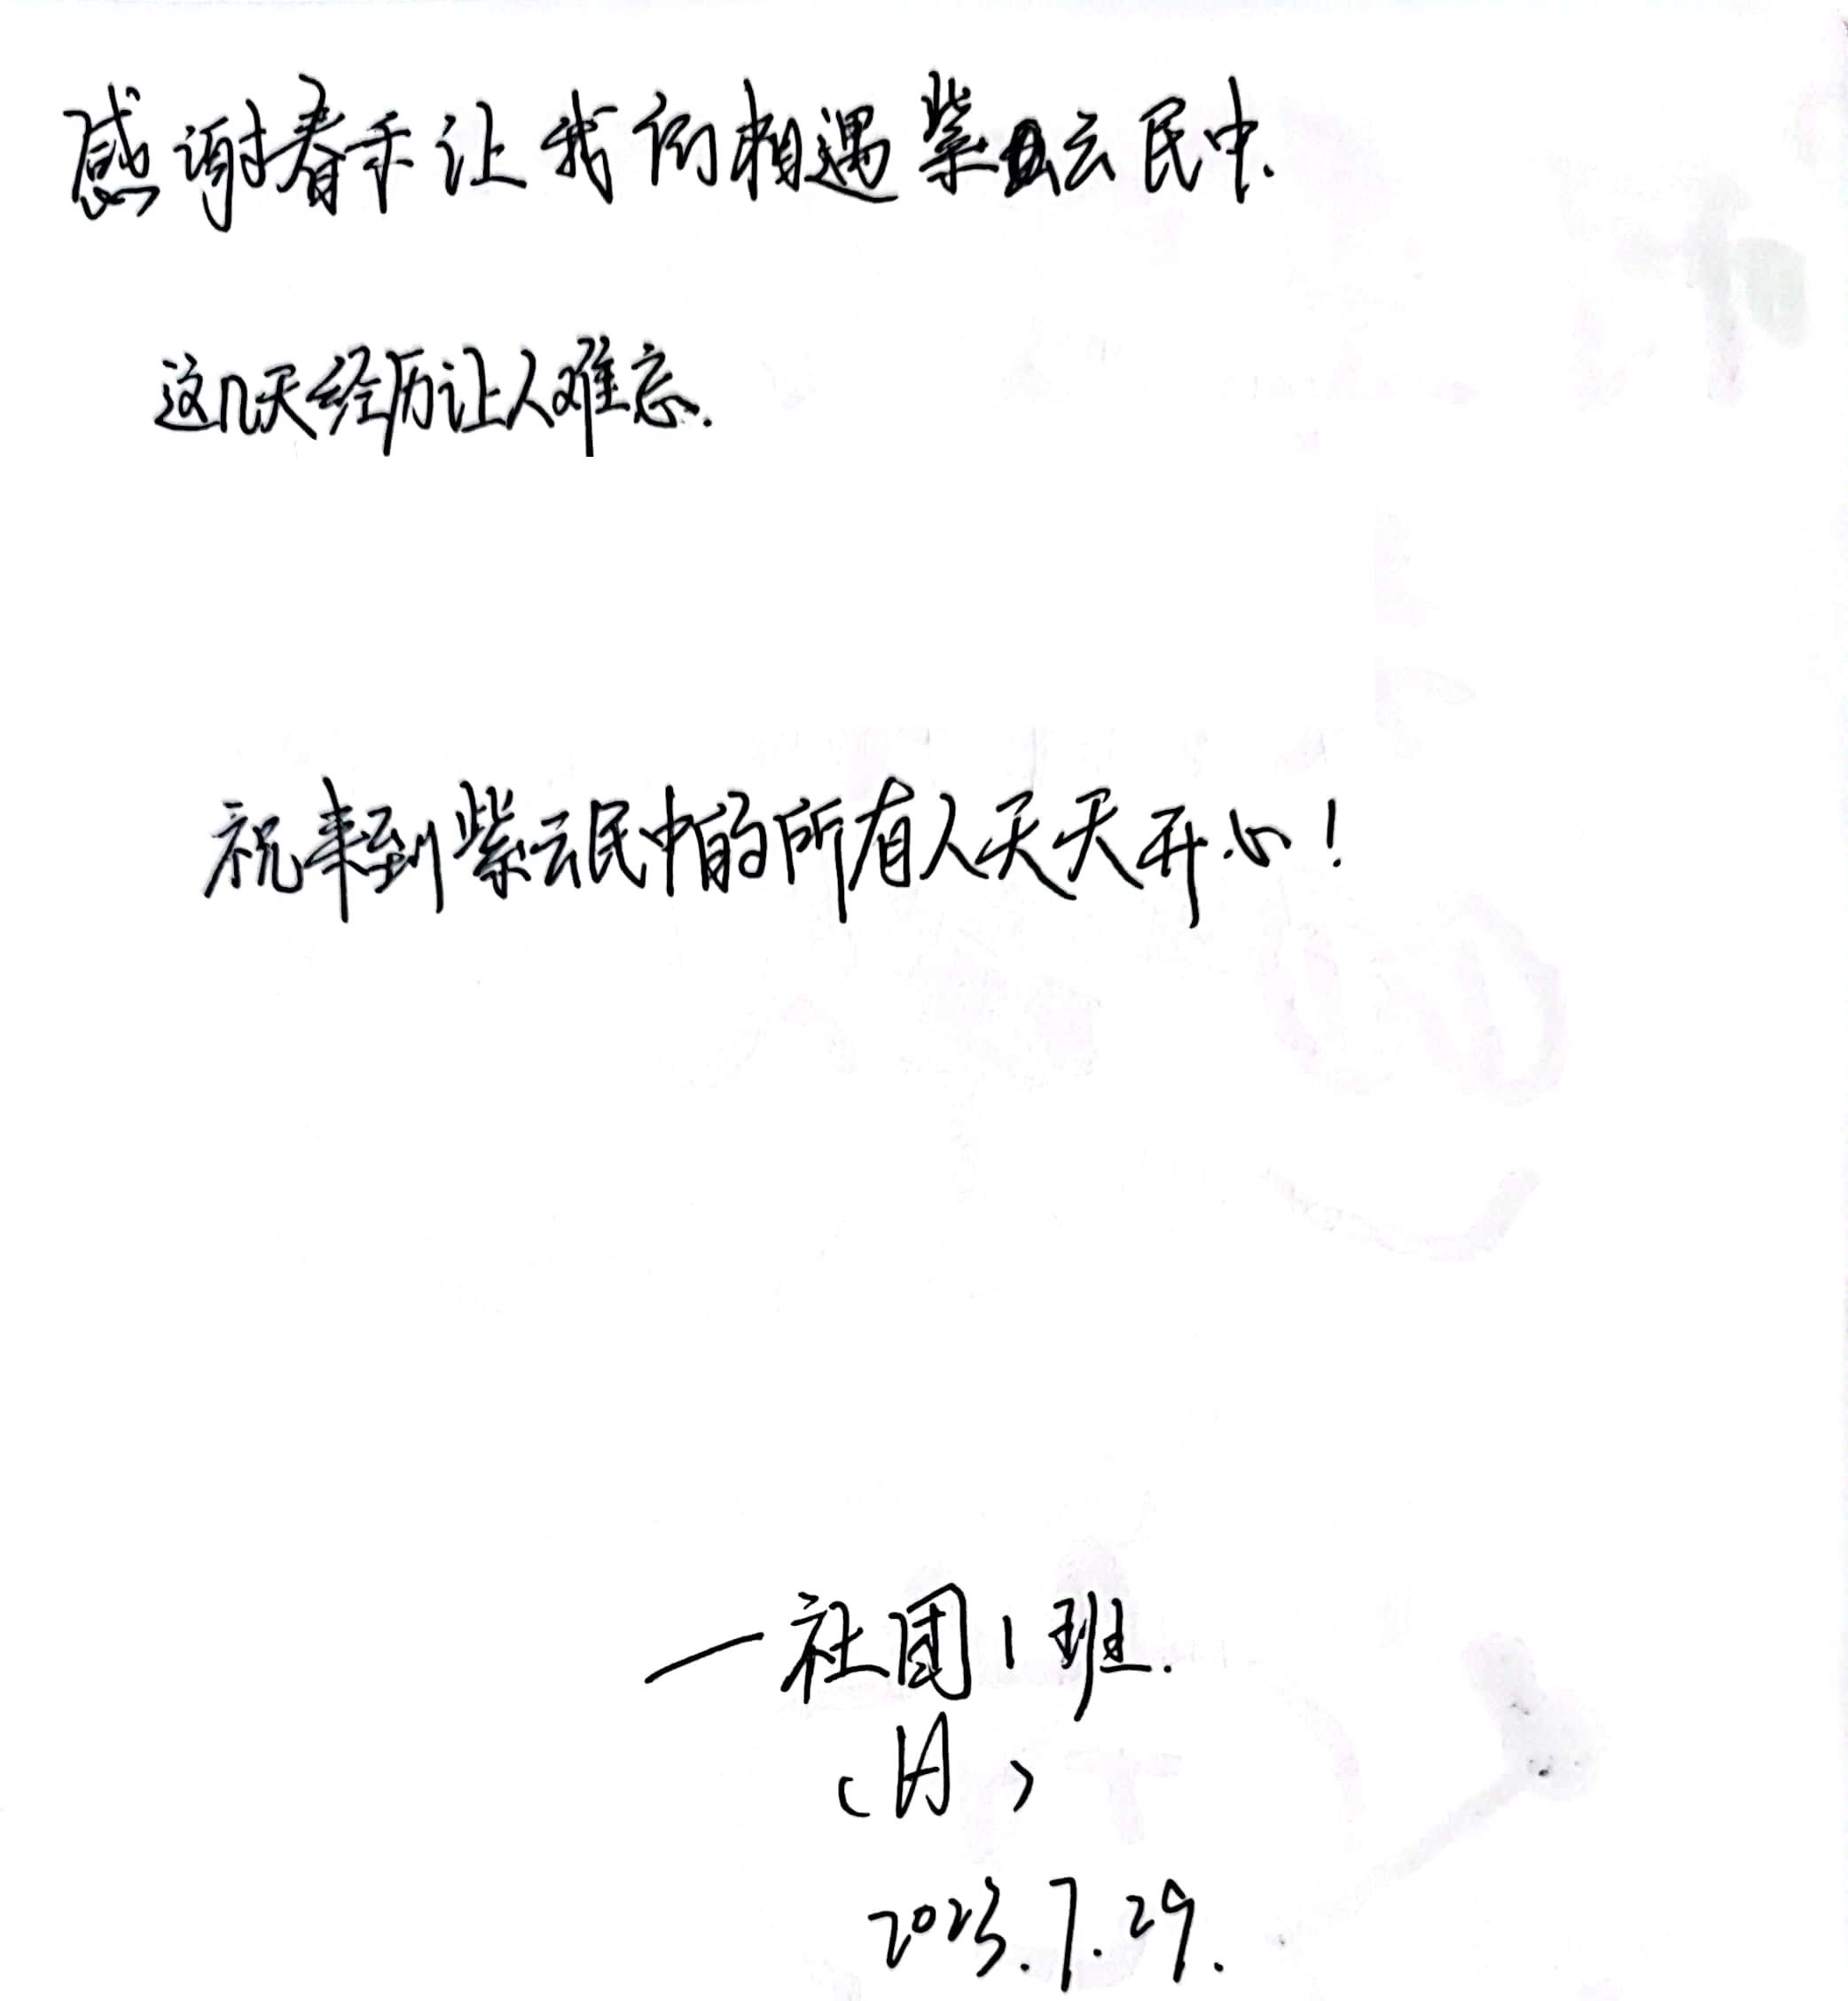 感谢春禾让我们相遇紫云民中.
这几天经历让人难忘.
祝来到紫云民中的所有人天天开心！
—社团1班.
（A）
2023.7.29.